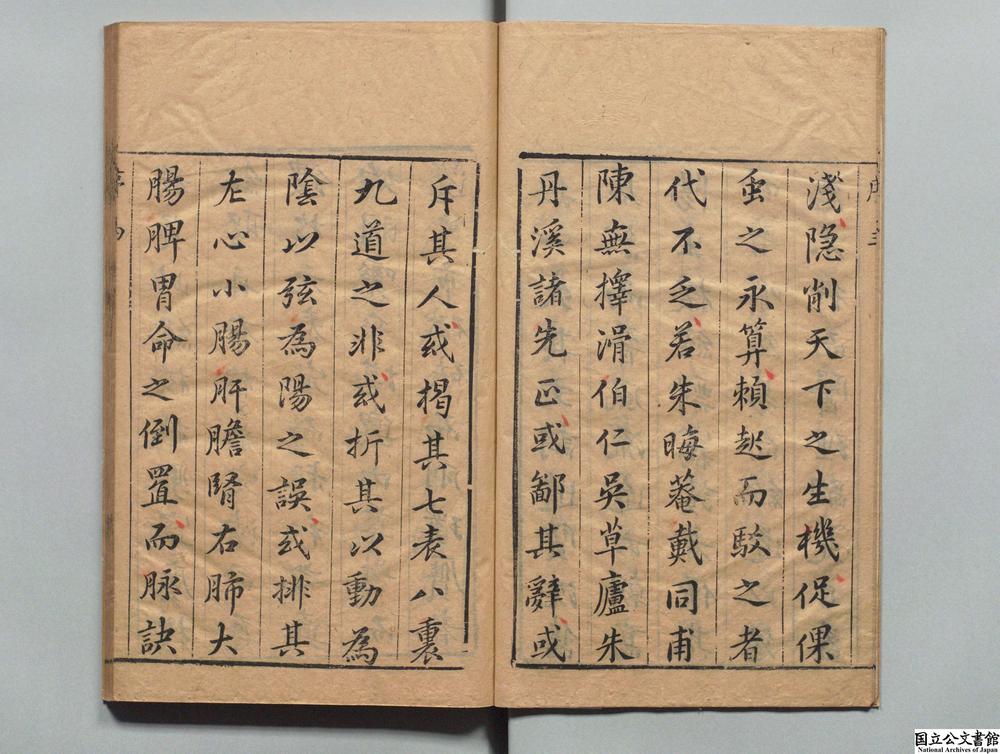 淺隐削天下之生機促倮
虫之永算頼起而駁之者
代不乏若朱晦菴戴同甫
陳無擇滑伯仁吳草廬朱
丹溪諸先正或鄙其辭或
斥其人或楬其七表八裏
九道之非或折其以動為
陰以弦為陽之誤或排其
左心小腸肝膽腎右肺大
腸脾胃命之倒置而脉訣
国立公文書館
National Archives of Japan